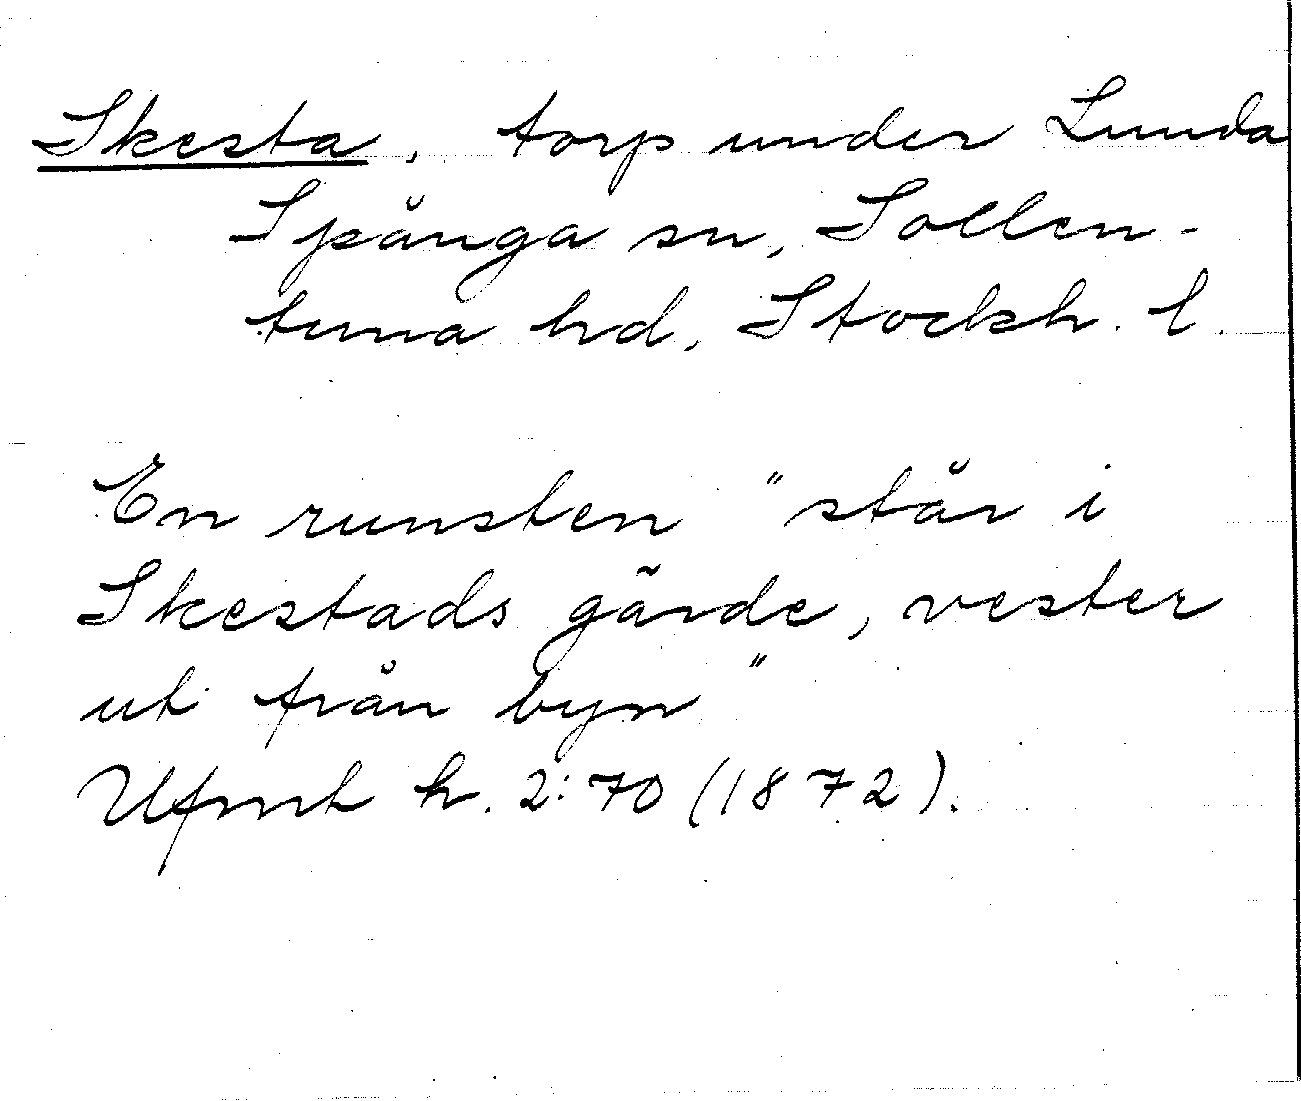 Skesta, torp under Lunda
Spånga sn, Sollen-
tuna hd, Stockh. l.
En runsten "står i
Skestads gärde, vester
ut från byn"
Ufmt h. 2:70 (1872).